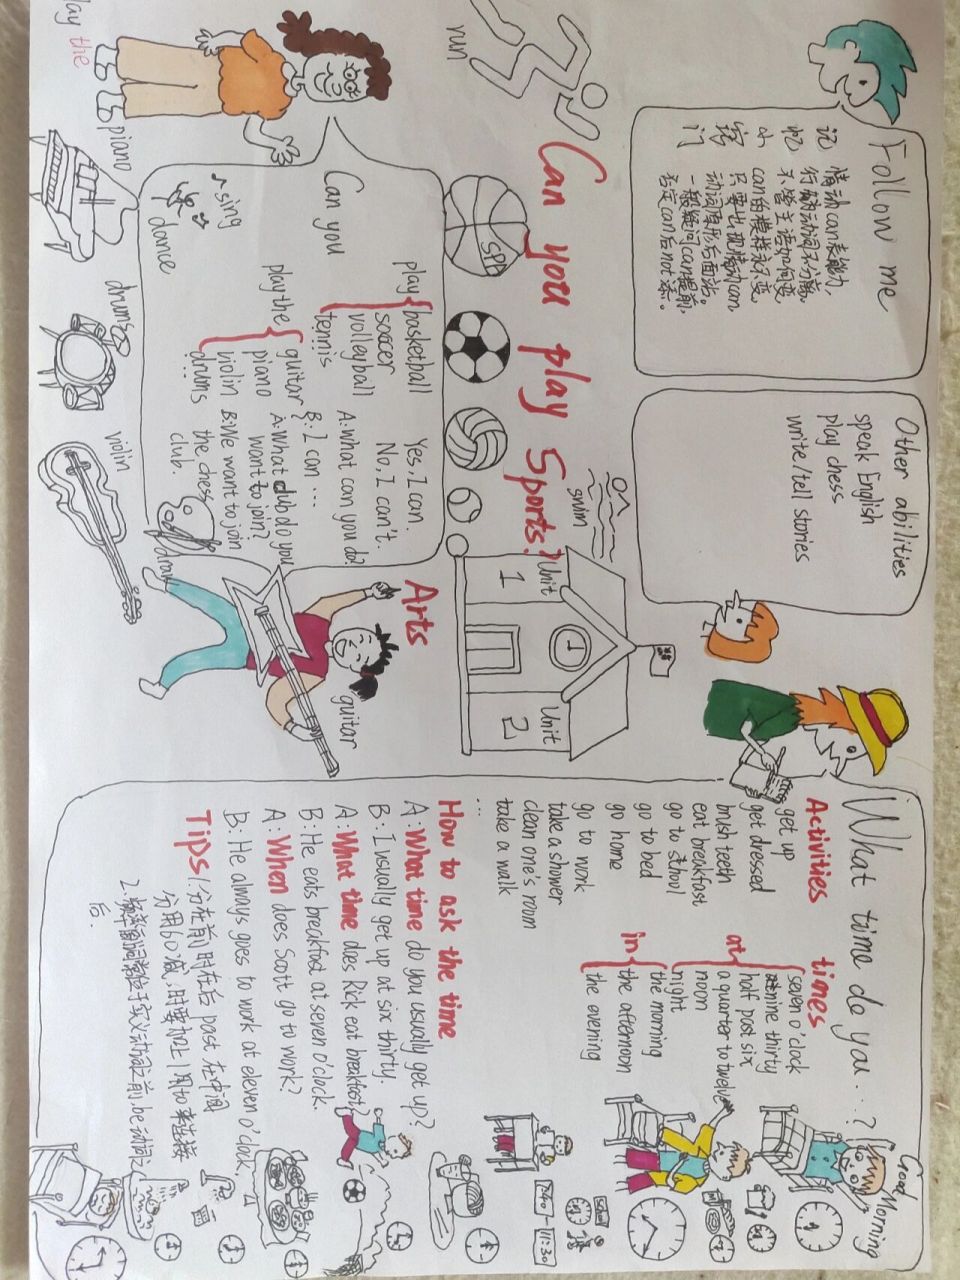 Follow me
记忆小窍门
情动can表能力,
行为动词不分离。
不管主语如何变,
can的模样永不变。
只要出现情动can,
动词原形后面站。
一般疑问can提前,
否定can后not添。
Other abilities
speak English
play chess
write/tell stories
run
swim
Can you play Sports?
Unit 1
Unit 2
Arts
guitar
Can you
play
basketball
soccer
volleyball
tennis
play the
guitar
piano
violin
drums
?
Yes, I can.
No, I can't.
A: what can you do?
B: I can ...
A: What club do you
want to join?
B: We want to join
the chess
club.
sing
dance
draw
play the
piano
drums
violin
What time do you...?
Good Morning
Activities
get up
get dressed
brush teeth
eat breakfast
go to school
go to bed
go home
go to work
take a shower
clean one's room
take a walk
...
times
at
seven o'clock
nine thirty
half past six
a quarter to twelve
noon
night
in
the morning
the afternoon
the evening
How to ask the time
A: What time do you usually get up?
B: I usually get up at six thirty.
A: What time does Rick eat breakfast?
B: He eats breakfast at seven o'clock.
A: When does Scott go to work?
B: He always goes to work at eleven o'clock.
Tips
1.分在前时在后 past 在中间
分用60减,时要加上1用to来连接
2.频率副词常位于实义动词之前,be动词之
后.